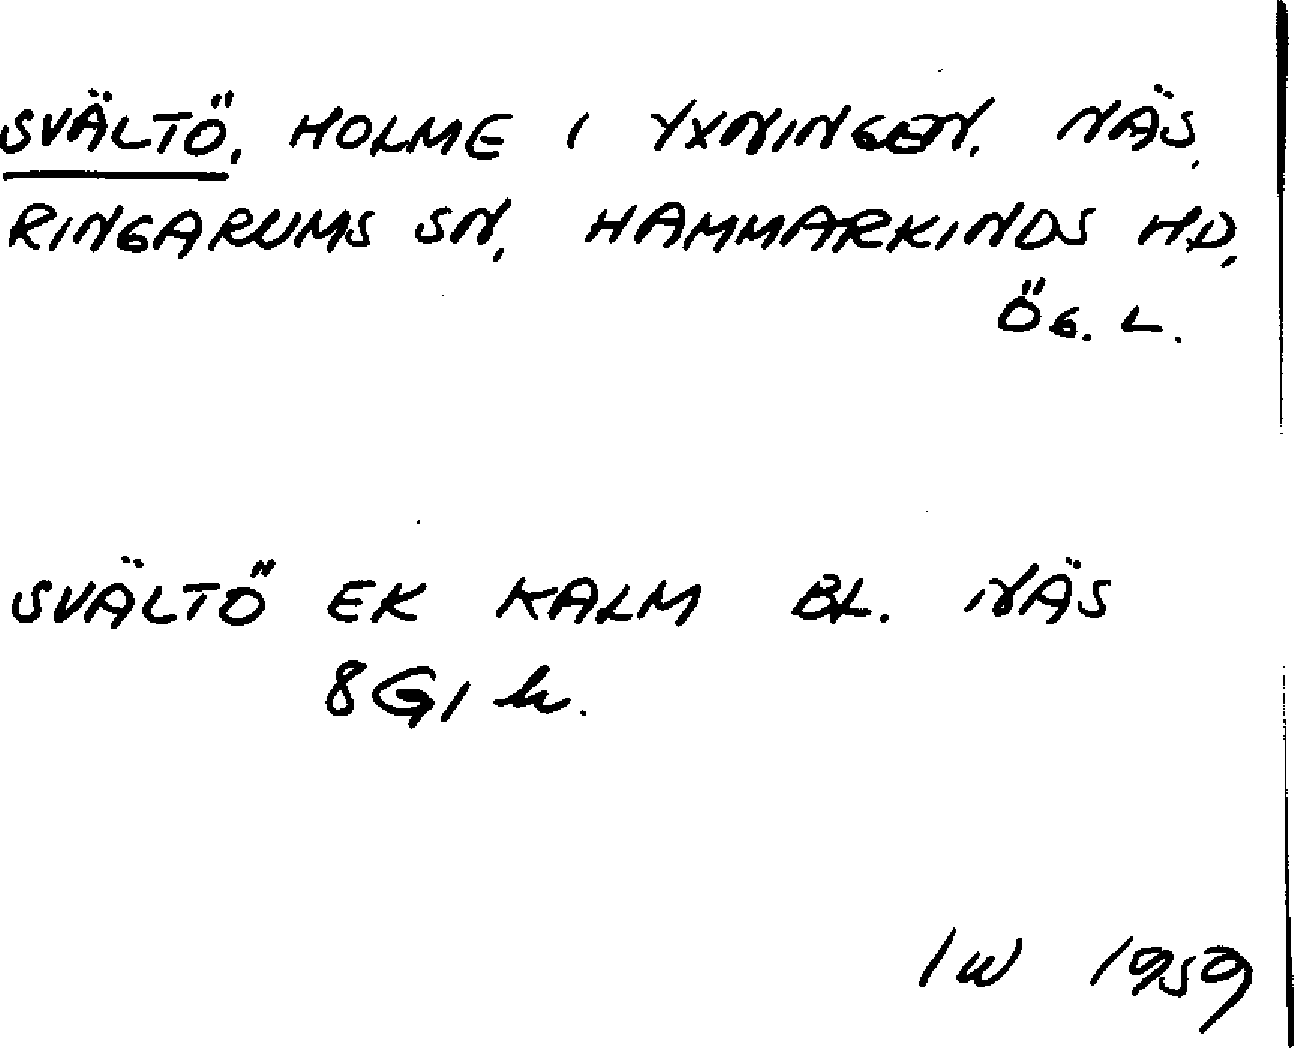 SVÄLTÖ, HOLME I YXNINGEN, NÄS,
RINGARUMS SN, HAMMARKINDS HD,
ÖG. L.
SVÄLTÖ EK KALM BL. NÄS
8G1 k.
IW 1959